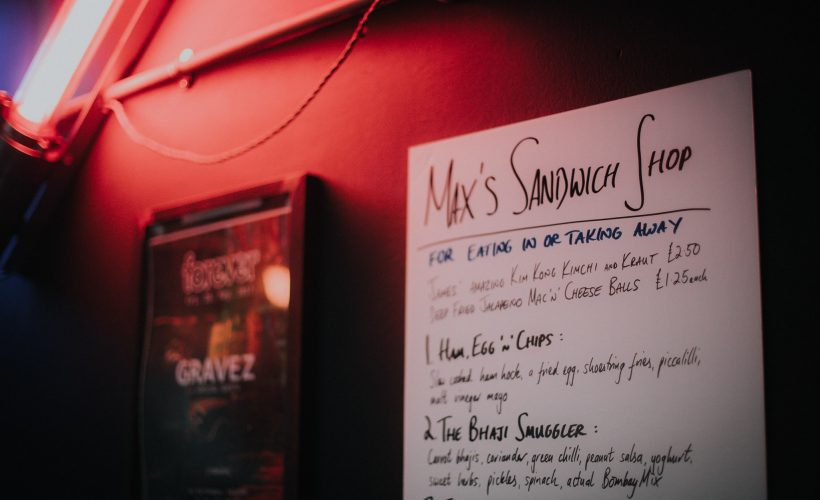 forever
GRAVEZ
MAX'S SANDWICH SHOP
FOR EATING IN OR TAKING AWAY
JAMES' AMAZING KIM KONG KIMCHI AND KRAUT £2·50
DEEP FRIED JALAPENO MAC 'N' CHEESE BALLS £1·25 each
1. HAM, EGG 'N' CHIPS :
Slow cooked ham hock, a fried egg, shoestring fries, piccalilli,
malt vinegar mayo
2. THE BHAJI SMUGGLER :
Carrot bhajis, coriander, green chilli, peanut salsa, yoghurt,
sweet herbs, pickles, spinach, actual Bombay Mix